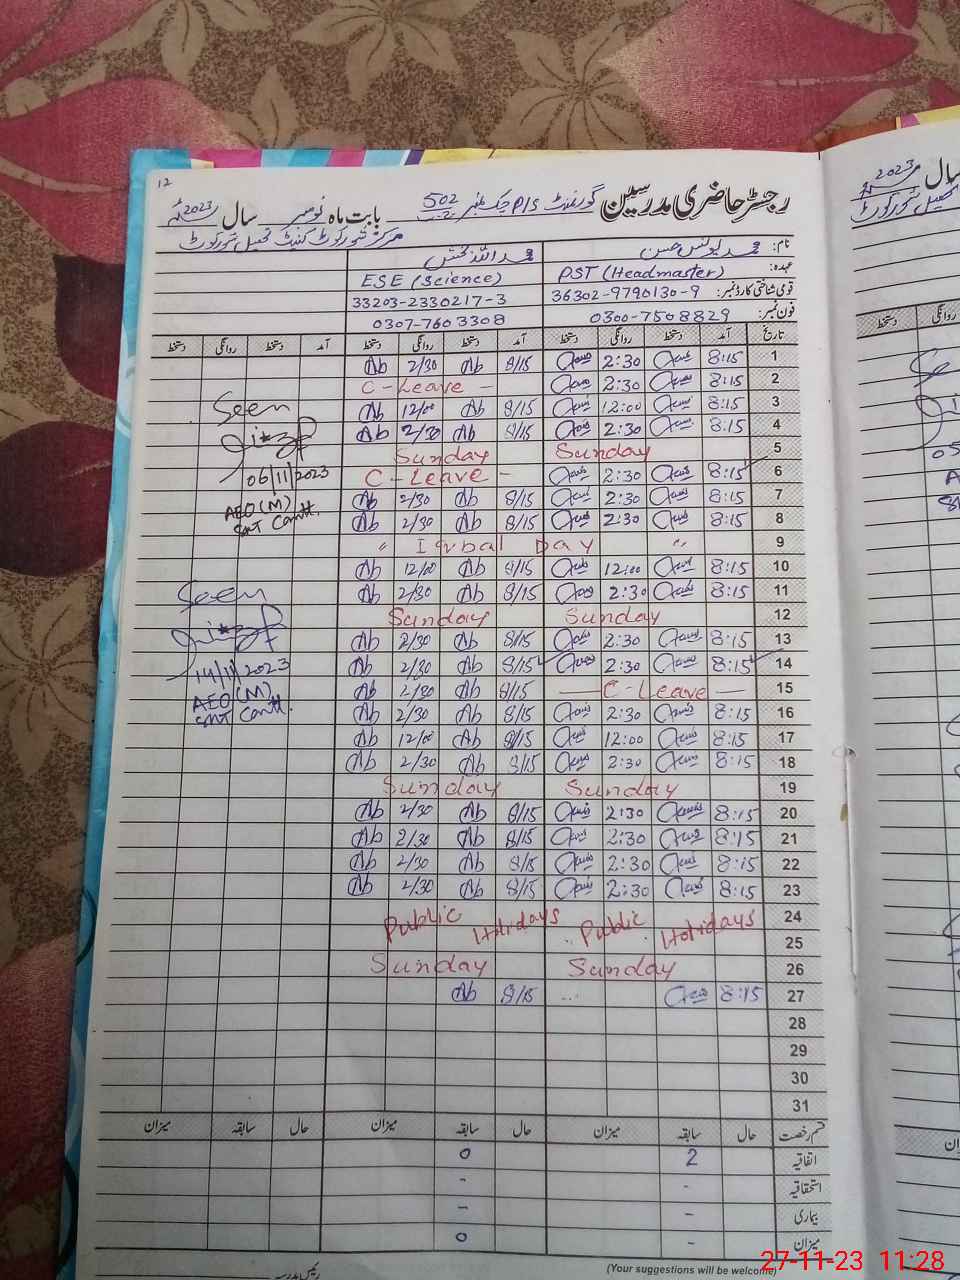 12
رجسٹر حاضری مدرسین گورنمنٹ P/S چک نمبر 502 بابت ماہ نومبر سال 2023ء
مرکز شورکوٹ کینٹ تحصیل شورکوٹ
نام: محمد یونس حسن محمد اللہ بخش
عہدہ: PST (Headmaster) ESE (Science)
قومی شناختی کارڈ نمبر: 36302-9790130-9 33203-2330217-3
فون نمبر: 0300-7508829 0307-7603308
تاریخ آمد دستخط روانگی دستخط آمد دستخط روانگی دستخط آمد دستخط روانگی دستخط
1 8:15 2:30 8/15 Ab 2/30 Ab
2 8:15 2:30 C-Leave -
3 8:15 12:00 8/15 Ab 12/00 Ab Seen
4 8:15 2:30 8/15 Ab 2/30 Ab
5 Sunday Sunday
6 8:15 2:30 C-Leave - 06/11/2023
7 8:15 2:30 8/15 Ab 2/30 Ab AEO (M)
8 8:15 2:30 8/15 Ab 2/30 Ab SKT Cantt.
9 " Iqbal Day "
10 8:15 12:00 8/15 Ab 12/00 Ab
11 8:15 2:30 8/15 Ab 2/30 Ab Seen
12 Sunday Sunday
13 8:15 2:30 8/15 Ab 2/30 Ab
14 8:15 2:30 8/15 Ab 2/30 Ab 14/11/2023
15 — C-Leave — 8/15 Ab 2/30 Ab AEO (M)
16 8:15 2:30 8/15 Ab 2/30 Ab SKT Cantt.
17 8:15 12:00 8/15 Ab 12/00 Ab
18 8:15 2:30 8/15 Ab 2/30 Ab
19 Sunday Sunday
20 8:15 2:30 8/15 Ab 2/30 Ab
21 8:15 2:30 8/15 Ab 2/30 Ab
22 8:15 2:30 8/15 Ab 2/30 Ab
23 8:15 2:30 8/15 Ab 2/30 Ab
24 Public Holidays Public Holidays
25
26 Sunday Sunday
27 8:15 8/15 Ab
28
29
30
31
قسم رخصت حال سابقہ میزان حال سابقہ میزان حال سابقہ میزان
اتفاقیہ 2 0
استحقاقیہ - -
بیماری - -
میزان - 0
(Your suggestions will be welcome)
رئیس مدرسہ
27-11-23 11:28